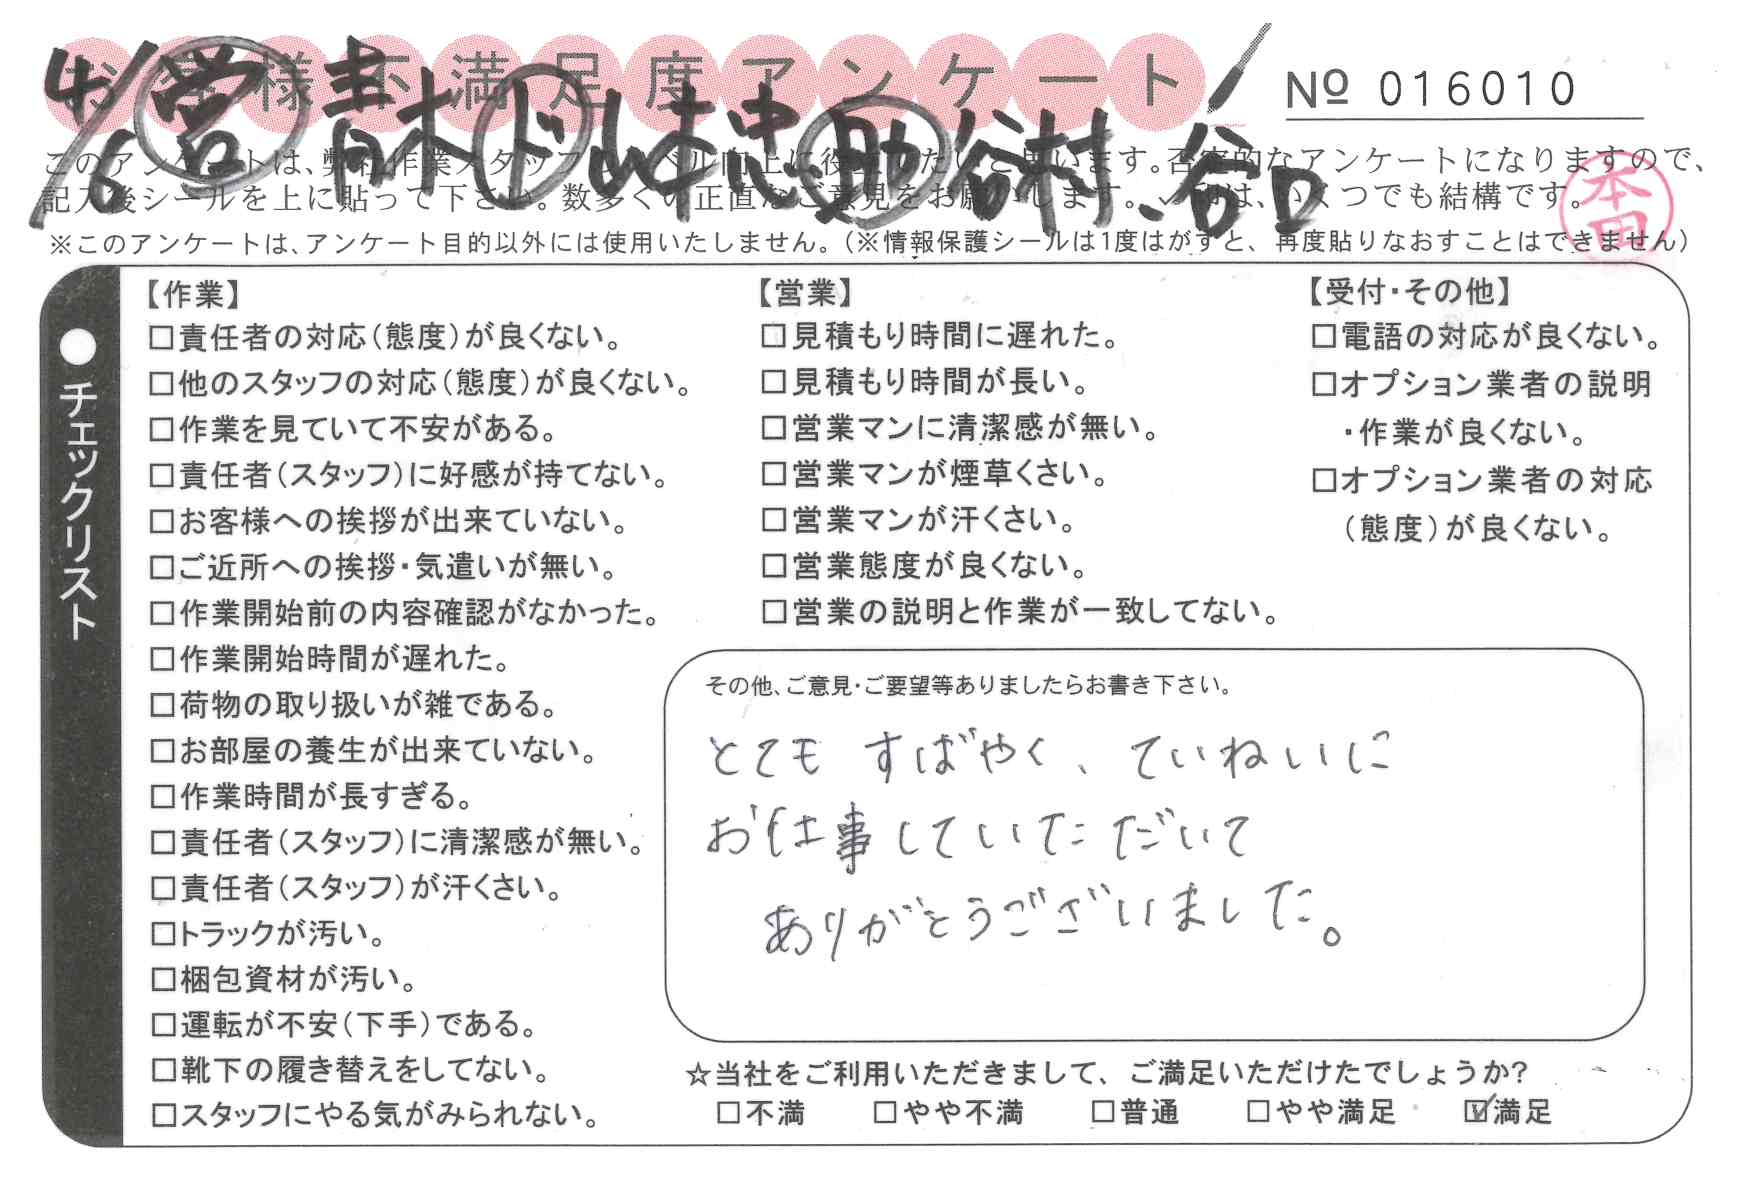 お客様不満足度アンケート
№ 016010
4/6 営 青木 ド 山本忠 助 谷村、谷口
このアンケートは、弊社作業スタッフのレベル向上に役立てたいと思います。否定的なアンケートになりますので、
記入後シールを上に貼って下さい。数多くの正直なご意見をお願いします。✓印は、いくつでも結構です。
本田
※このアンケートは、アンケート目的以外には使用いたしません。（※情報保護シールは1度はがすと、再度貼りなおすことはできません）
●チェックリスト
【作業】
□責任者の対応（態度）が良くない。
□他のスタッフの対応（態度）が良くない。
□作業を見ていて不安がある。
□責任者（スタッフ）に好感が持てない。
□お客様への挨拶が出来ていない。
□ご近所への挨拶・気遣いが無い。
□作業開始前の内容確認がなかった。
□作業開始時間が遅れた。
□荷物の取り扱いが雑である。
□お部屋の養生が出来ていない。
□作業時間が長すぎる。
□責任者（スタッフ）に清潔感が無い。
□責任者（スタッフ）が汗くさい。
□トラックが汚い。
□梱包資材が汚い。
□運転が不安（下手）である。
□靴下の履き替えをしてない。
□スタッフにやる気がみられない。
【営業】
□見積もり時間に遅れた。
□見積もり時間が長い。
□営業マンに清潔感が無い。
□営業マンが煙草くさい。
□営業マンが汗くさい。
□営業態度が良くない。
□営業の説明と作業が一致してない。
【受付・その他】
□電語の対応が良くない。
□オプション業者の説明
・作業が良くない。
□オプション業者の対応
（態度）が良くない。
その他、ご意見・ご要望等ありましたらお書き下さい。
とても すばやく、ていねいに
お仕事していただいて
ありがとうございました。
☆当社をご利用いただきまして、ご満足いただけたでしょうか？
□不満 □やや不満 □普通 □やや満足 ☑満足